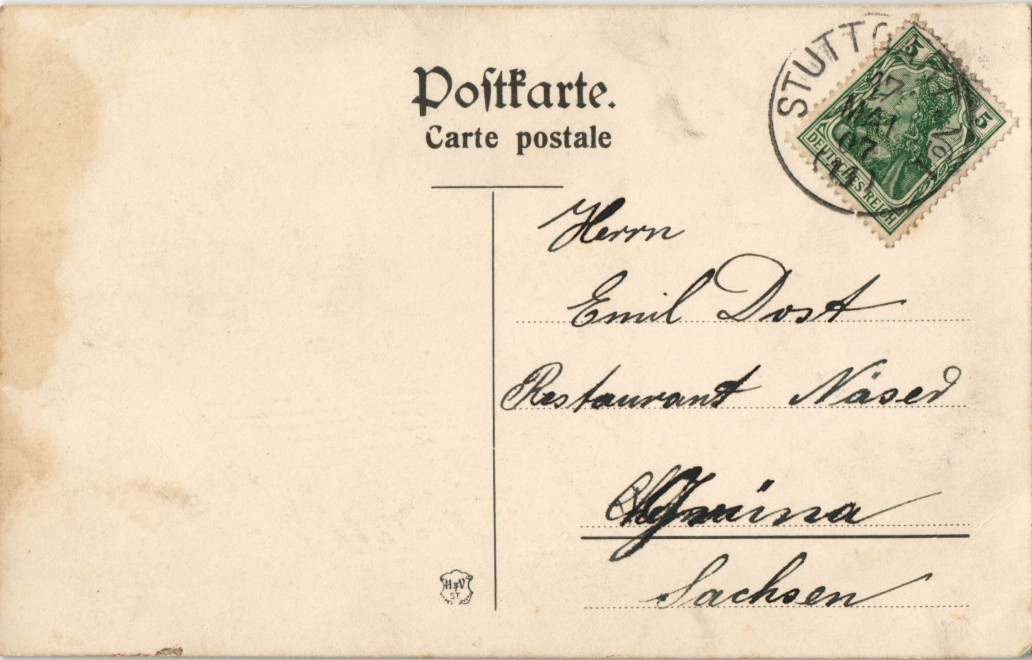 Postkarte.
Carte postale
STUTTG
27
MAI
07
(14)
5
5
DEUTSCHES REICH
Herrn
Emil Dost
Restaurant Näser
Grüna
Sachsen
H&V
ST